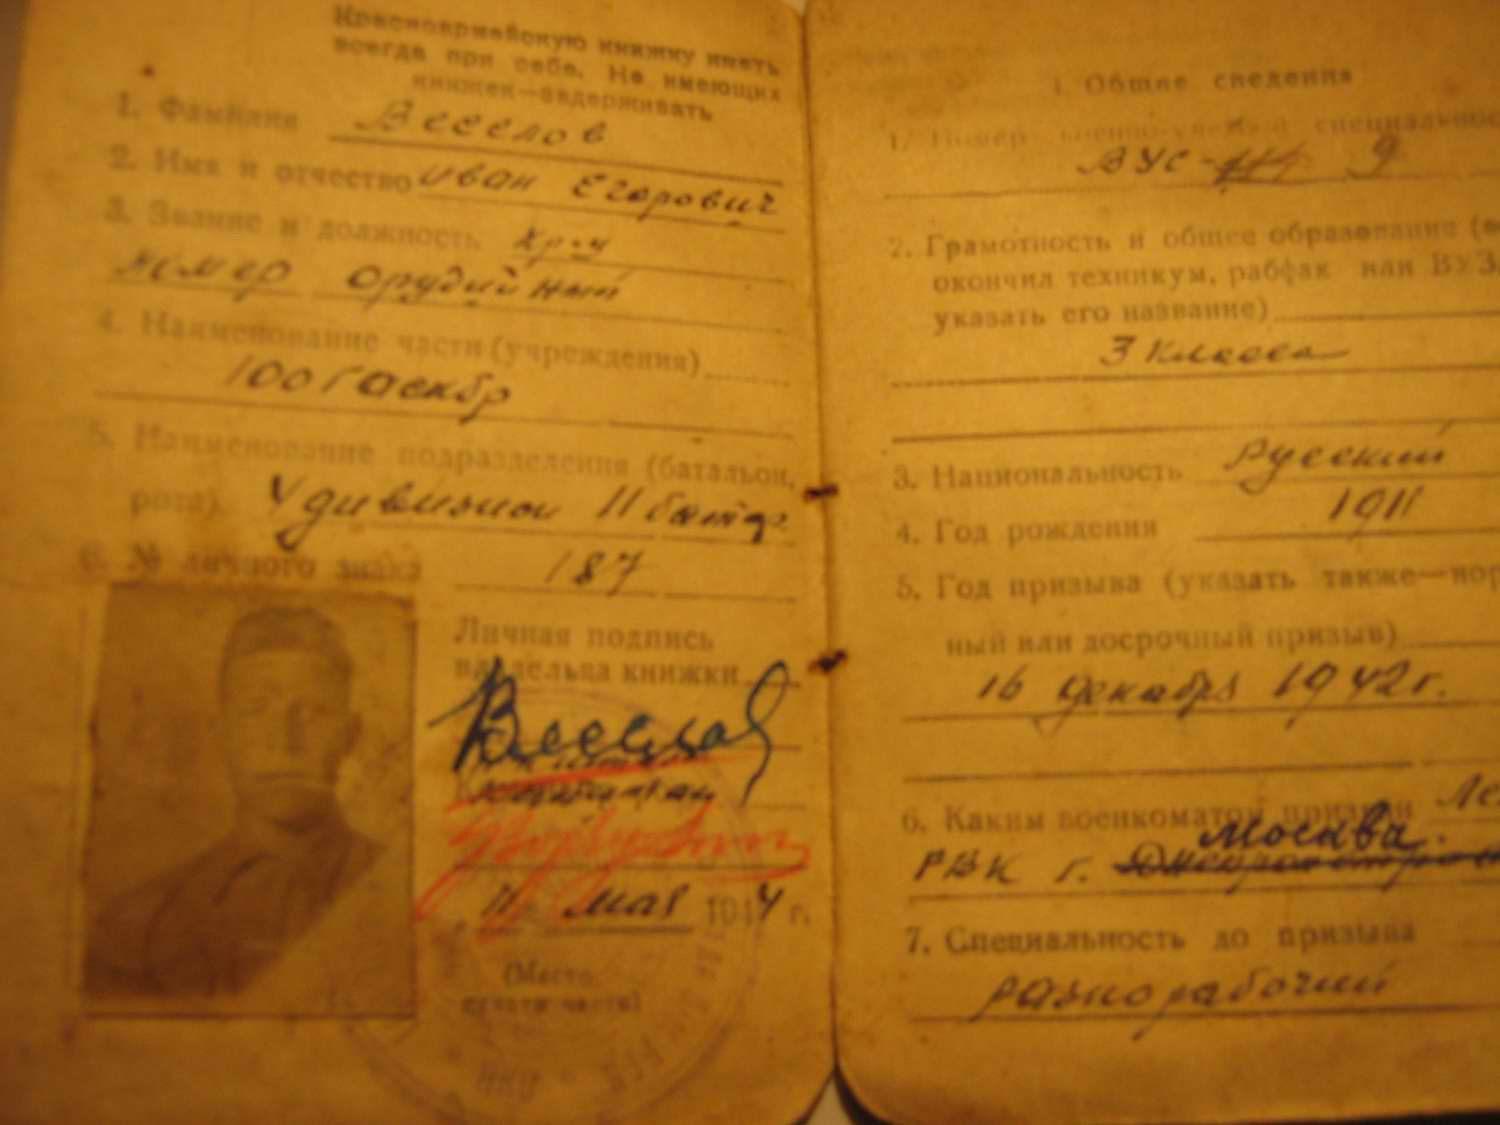 Красноармейскую книжку иметь
всегда при себе. Не имеющих
книжек—задерживать
1. Фамилия Веселов
2. Имя и отчество Иван Егорович
3. Звание и должность Кр-ц
номер орудийный
4. Наименование части (учреждения)
100 Гаскбр
5. Наименование подразделения (батальон,
рота) 4 дивизион 11 батар.
6. № личного знака 187
Личная подпись
владельца книжки
Веселов
11 мая 1944 г.
(Место
печати части)
I. Общие сведения
1. Номер военно-учетной специальнос
ВУС- 9
2. Грамотность и общее образование (
окончил техникум, рабфак или ВУЗ,
указать его название)
3 класса
3. Национальность Русский
4. Год рождения 1911
5. Год призыва (указать также—нор
ный или досрочный призыв)
16 декабря 1942 г.
6. Каким военкоматом призван Ле
Москва.
РВК г.
7. Специальность до призыва
разнорабочий